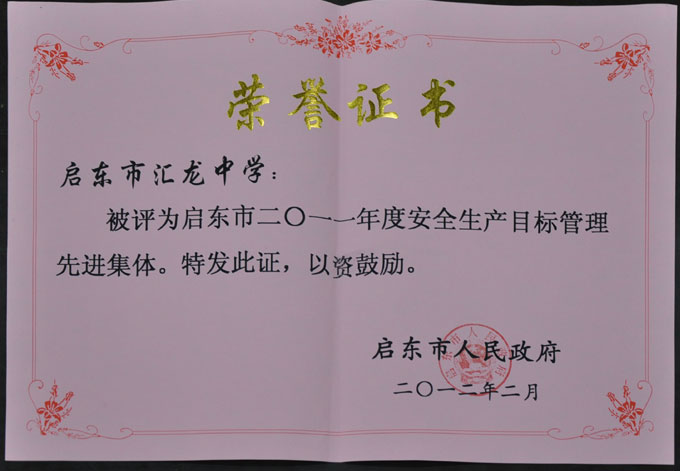 荣誉证书
启东市汇龙中学：
被评为启东市二〇一一年度安全生产目标管理
先进集体。特发此证，以资鼓励。
启东市人民政府
二〇一二年二月
启东市人民政府